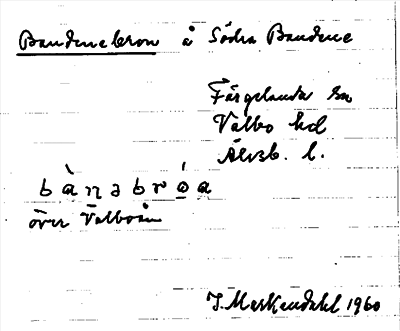 Baudenebron å Södra Baudene
Färgelanda sn
Valbo hd
Älvsb. l.
bàɳəbróa
över Valboån
J. Markendahl 1960